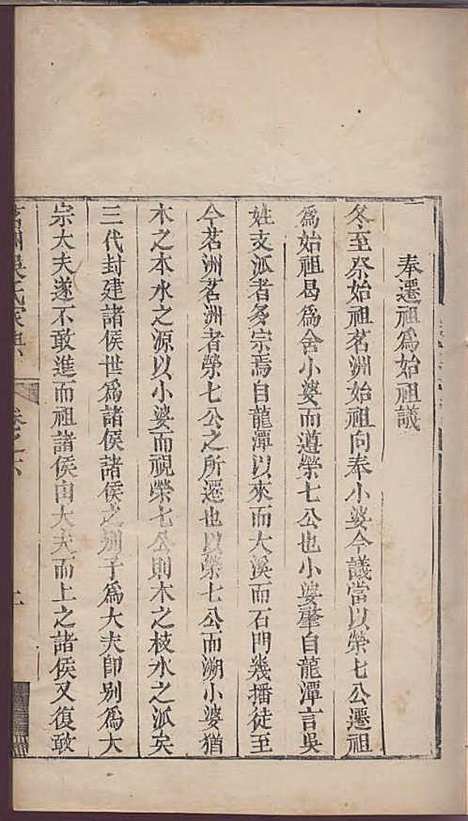 奉遷祖爲始祖議
冬至祭始祖茗洲始祖向奉小婆今議當以榮七公遷祖
爲始祖曷爲舍小婆而遵榮七公也小婆肇自龍潭言吳
姓支派者多宗焉自龍潭以來而大溪而石門幾播徒至
今茗洲茗洲者榮七公之所遷也以榮七公而溯小婆猶
木之本水之源以小婆而視榮七公則木之枝水之派矣
三代封建諸侯世爲諸侯諸侯之別子爲大夫卽別爲大
宗大夫遂不敢進而祖諸侯由大夫而上之諸侯又復敢
茗洲吳氏家典 卷之六